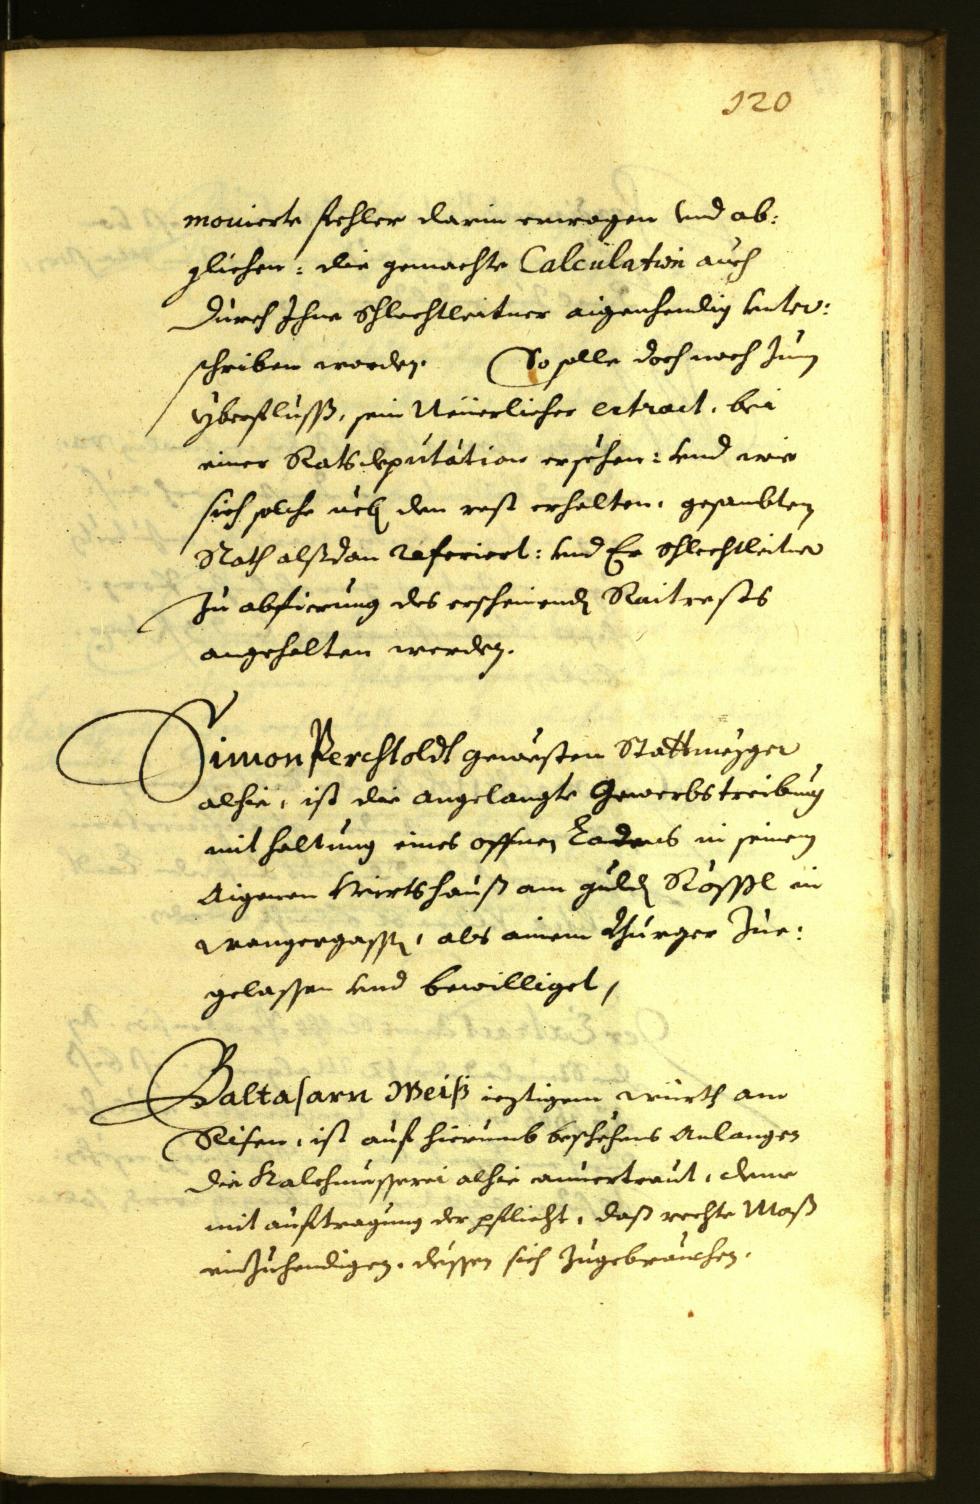 120
movierte fehler darin erwogen vnd ab:
glichen: die gemachte Calculation auch
durch Ihne Schlechtleitner aigenhendig vnter:
schriben worden. So solle doch noch zum
yberfluss, sein Neüerlicher extract, bei
einer Rats deputation ersehen: vnd wie
sich solche den rest erhalten, gesambten
Rath alßdan referiert: vnd Er Schlechtleitner
zu abfierung des erscheinenden Raitrests
angehalten werden.
Simon Perchtoldt gewesten Stattmezger
alhie, ist die angelangte Gewerbstreibung
mit haltung eines offnen Ladens in seinem
Aigenen Wirtshauß am gulden Rössl in
Wangergassen, als ainem Burger zue:
gelassen vnd bewilliget,
Baltasarn Weiß ieztigem würth am
Risen, ist auf hierumb beschehens Anlangen
die Kalchmesserei alhie anuertraut, deme
mit auftragung der pflicht, daß rechte Maß
einzuhendigen, dessen sich zugebrauchen.